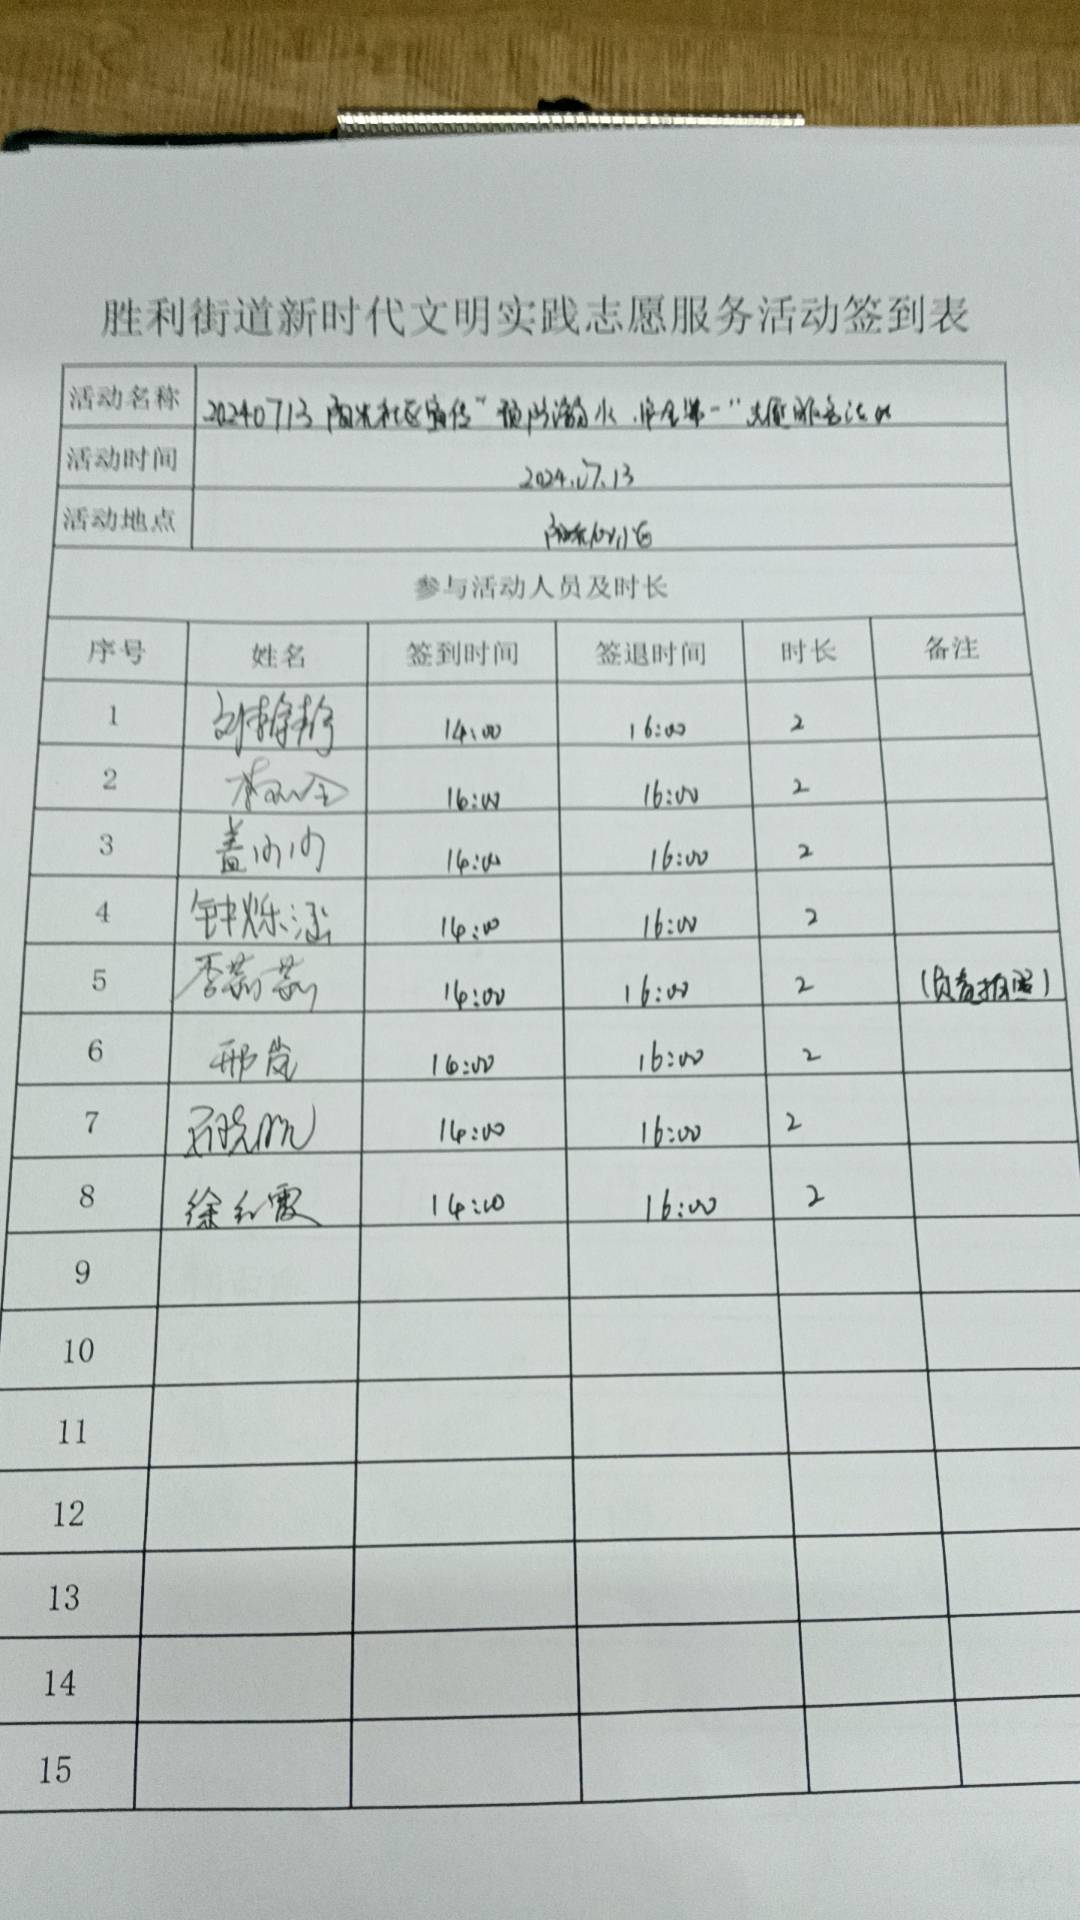 胜利街道新时代文明实践志愿服务活动签到表
活动名称 20240713 阳光社区宣传"预防溺水,安全第一"志愿服务活动
活动时间 2024.07.13
活动地点
参与活动人员及时长
序号 姓名 签到时间 签退时间 时长 备注
1 14:00 16:00 2
2 14:00 16:00 2
3 盖 14:00 16:00 2
4 钟烁涵 14:00 16:00 2
5 李茹茹 14:00 16:00 2 (负责拍照)
6 邢岚 14:00 16:00 2
7 14:00 16:00 2
8 徐红霞 14:00 16:00 2
9
10
11
12
13
14
15